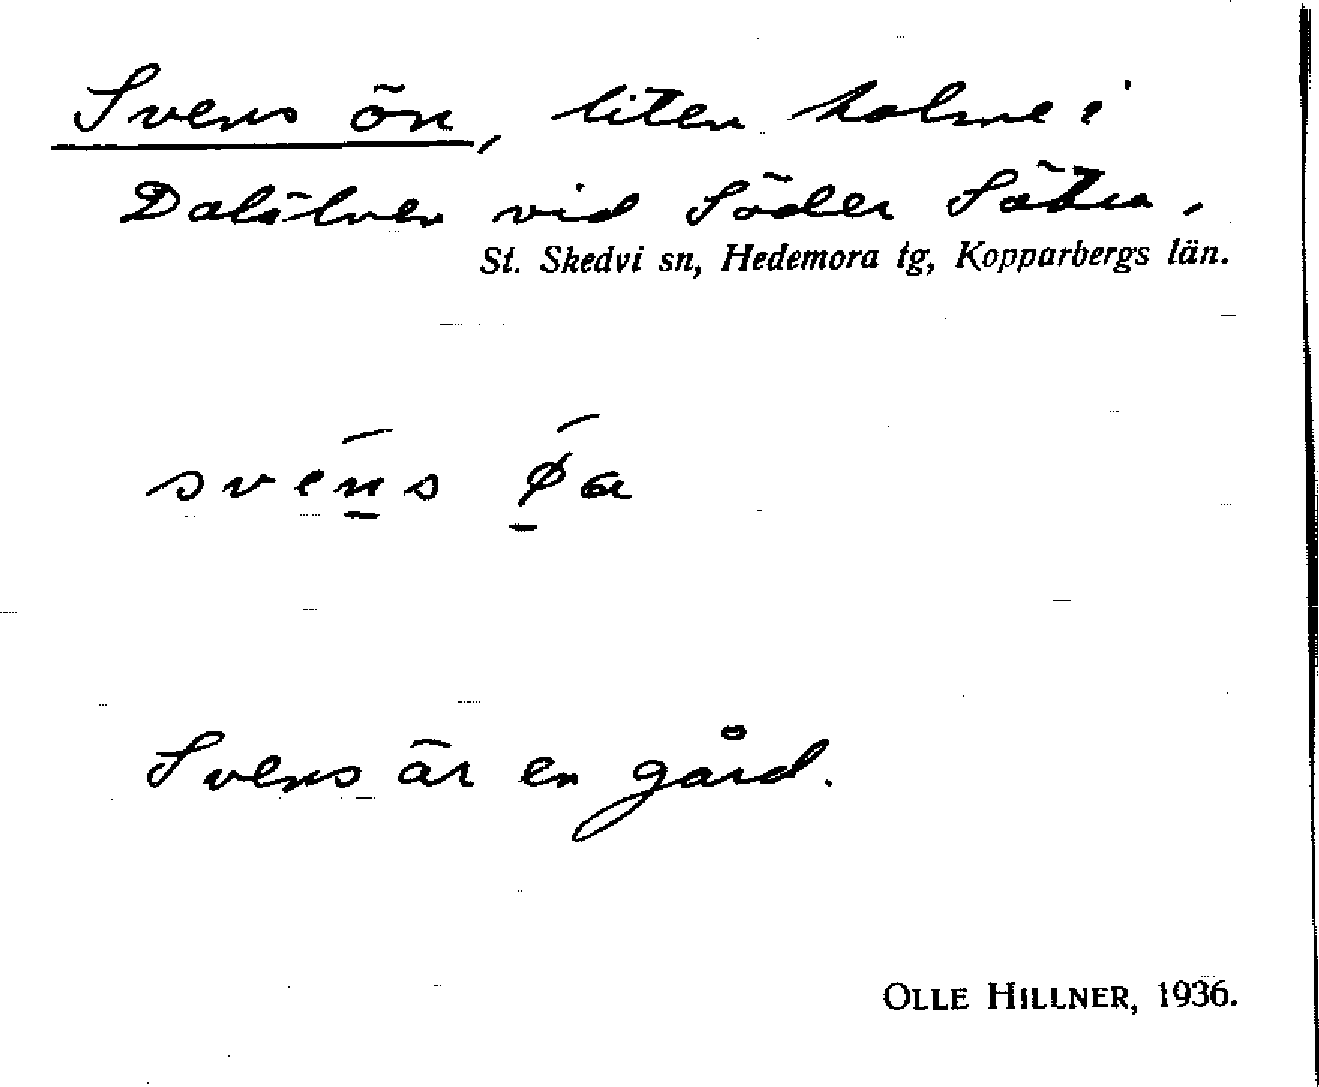 Svens ön, liten holme i
Dalälven vid Söder Sätra.
St. Skedvi sn, Hedemora tg, Kopparbergs län.
svens øa
Svens är en gård.
OLLE HILLNER, 1936.